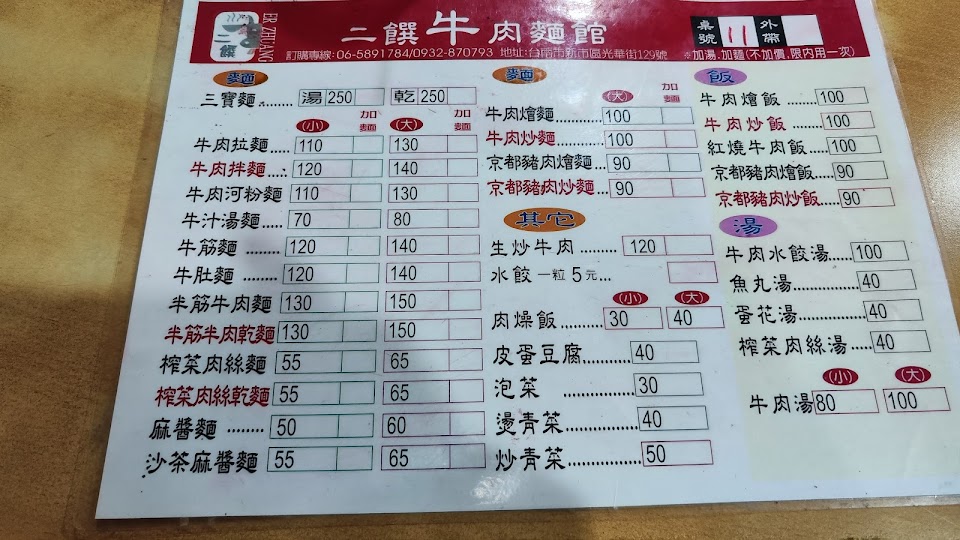 二饌
ER ZHUANG
二饌牛肉麵館
桌號 11 外帶
訂購專線:06-5891784/0932-870793 地址:台南市新市區光華街129號
※加湯.加麵(不加價.限內用一次)
麥麵
三寶麵........ 湯 250 乾 250
(小) 加麵 (大) 加麵
牛肉拉麵 110 130
牛肉拌麵.... 120 140
牛肉河粉麵 110 130
牛汁湯麵..... 70 80
牛筋麵 ....... 120 140
牛肚麵 ....... 120 140
半筋牛肉麵 130 150
半筋半肉乾麵 130 150
榨菜肉絲麵 55 65
榨菜肉絲乾麵 55 65
麻醬麵 ........ 50 60
沙茶麻醬麵 55 65
麥麵
(大) 加麵
牛肉燴麵........ 100
牛肉炒麵........ 100
京都豬肉燴麵... 90
京都豬肉炒麵... 90
其它
生炒牛肉 ......... 120
水餃 一粒 5 元...
(小) (大)
肉燥飯.......... 30 40
皮蛋豆腐........... 40
泡菜 30
燙青菜............. 40
炒青菜............... 50
飯
牛肉燴飯 ........ 100
牛肉炒飯 ........ 100
紅燒牛肉飯..... 100
京都豬肉燴飯.. 90
京都豬肉炒飯..... 90
湯
牛肉水餃湯..... 100
魚丸湯............. 40
蛋花湯............. 40
榨菜肉絲湯..... 40
(小) (大)
牛肉湯 80 100